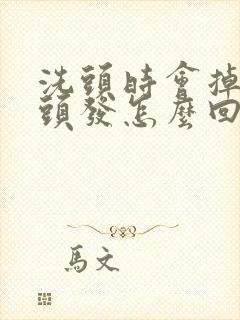 洗頭時會掉
頭發怎麼回
馬文